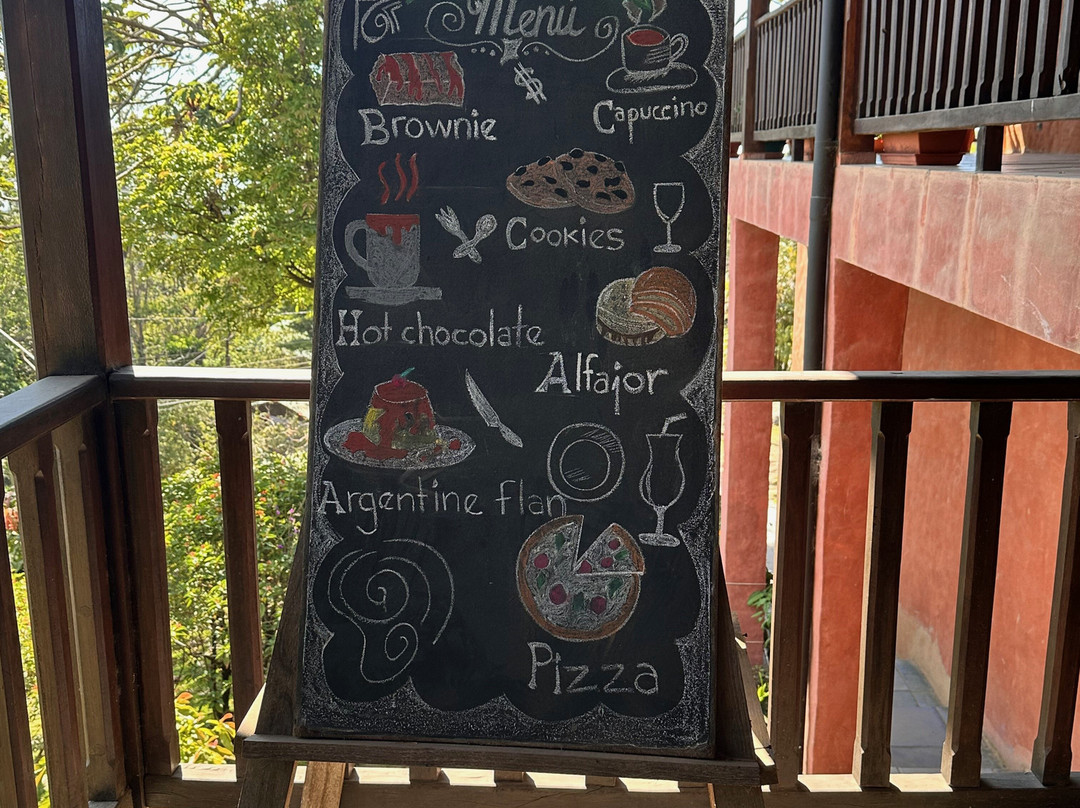 Menú
$
Brownie
Capuccino
Cookies
Hot chocolate
Alfajor
Argentine flan
Pizza